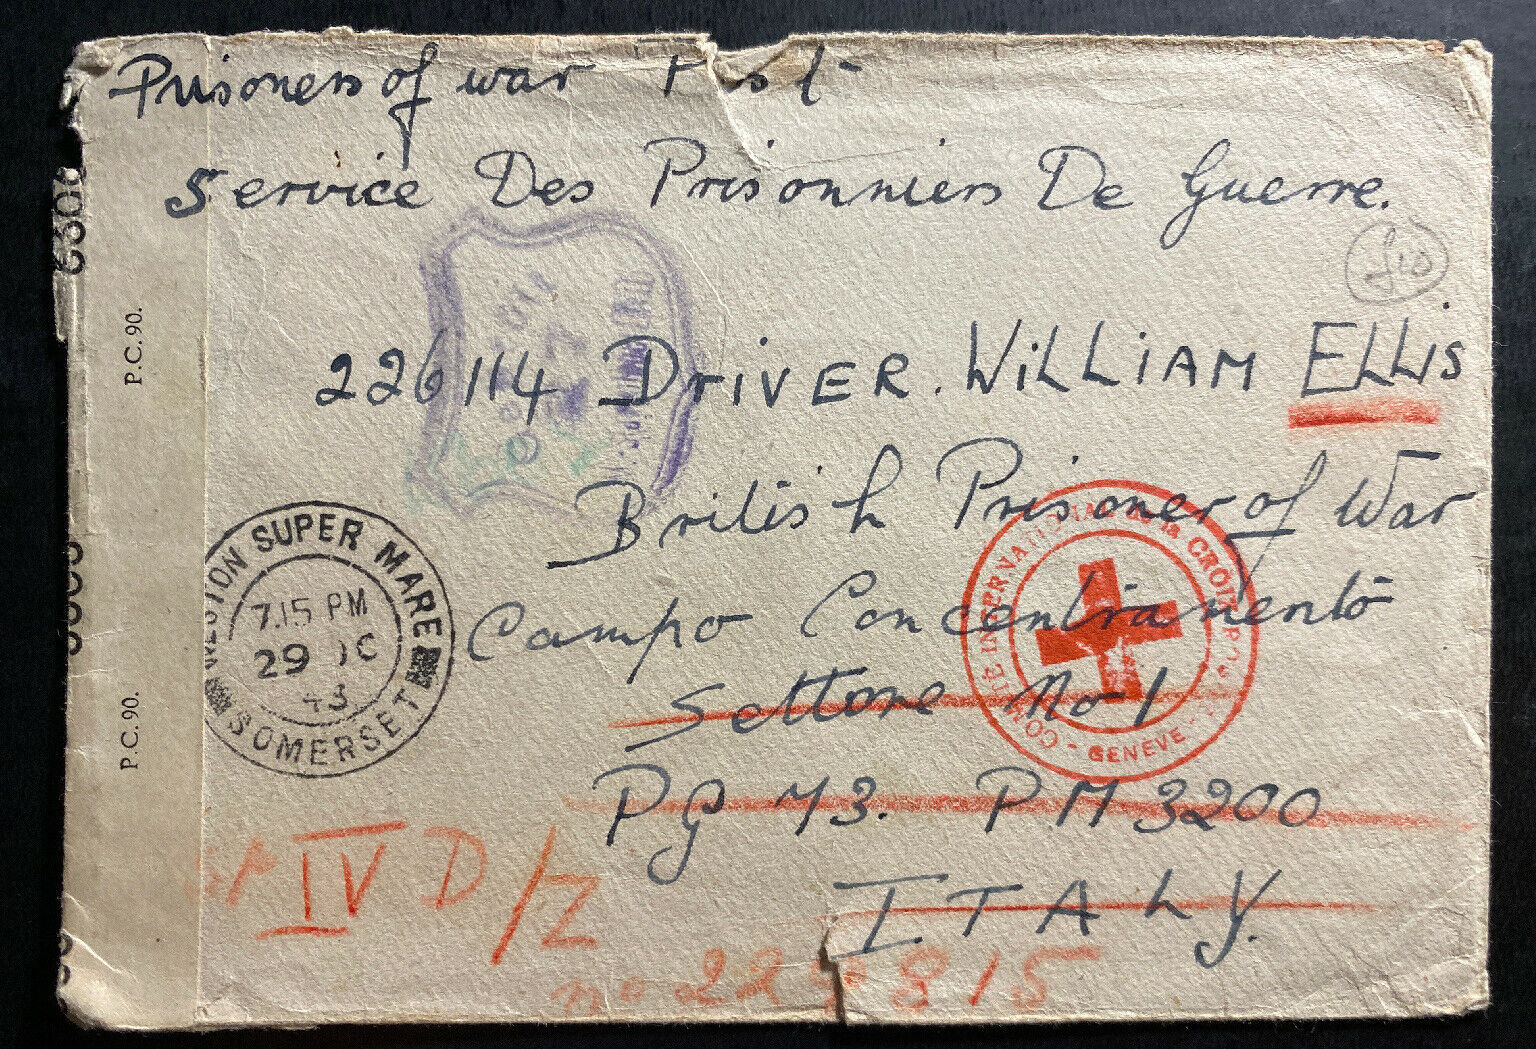 Prisoners of war Post
Service Des Prisonniers De Guerre.
£10
226114 DRiVER. WiLLiAM ELLiS
British Prisoner of War
Campo Concentramento
Settore No 1
PG 73. PM 3200
ITALY.
IV D/Z
no 229815
WESTON SUPER MARE
7.15 PM
29 DC
43
SOMERSET
COMITÉ INTERNATIONAL de la CROIX
- GENÈVE -
P.C. 90.
P.C. 90.